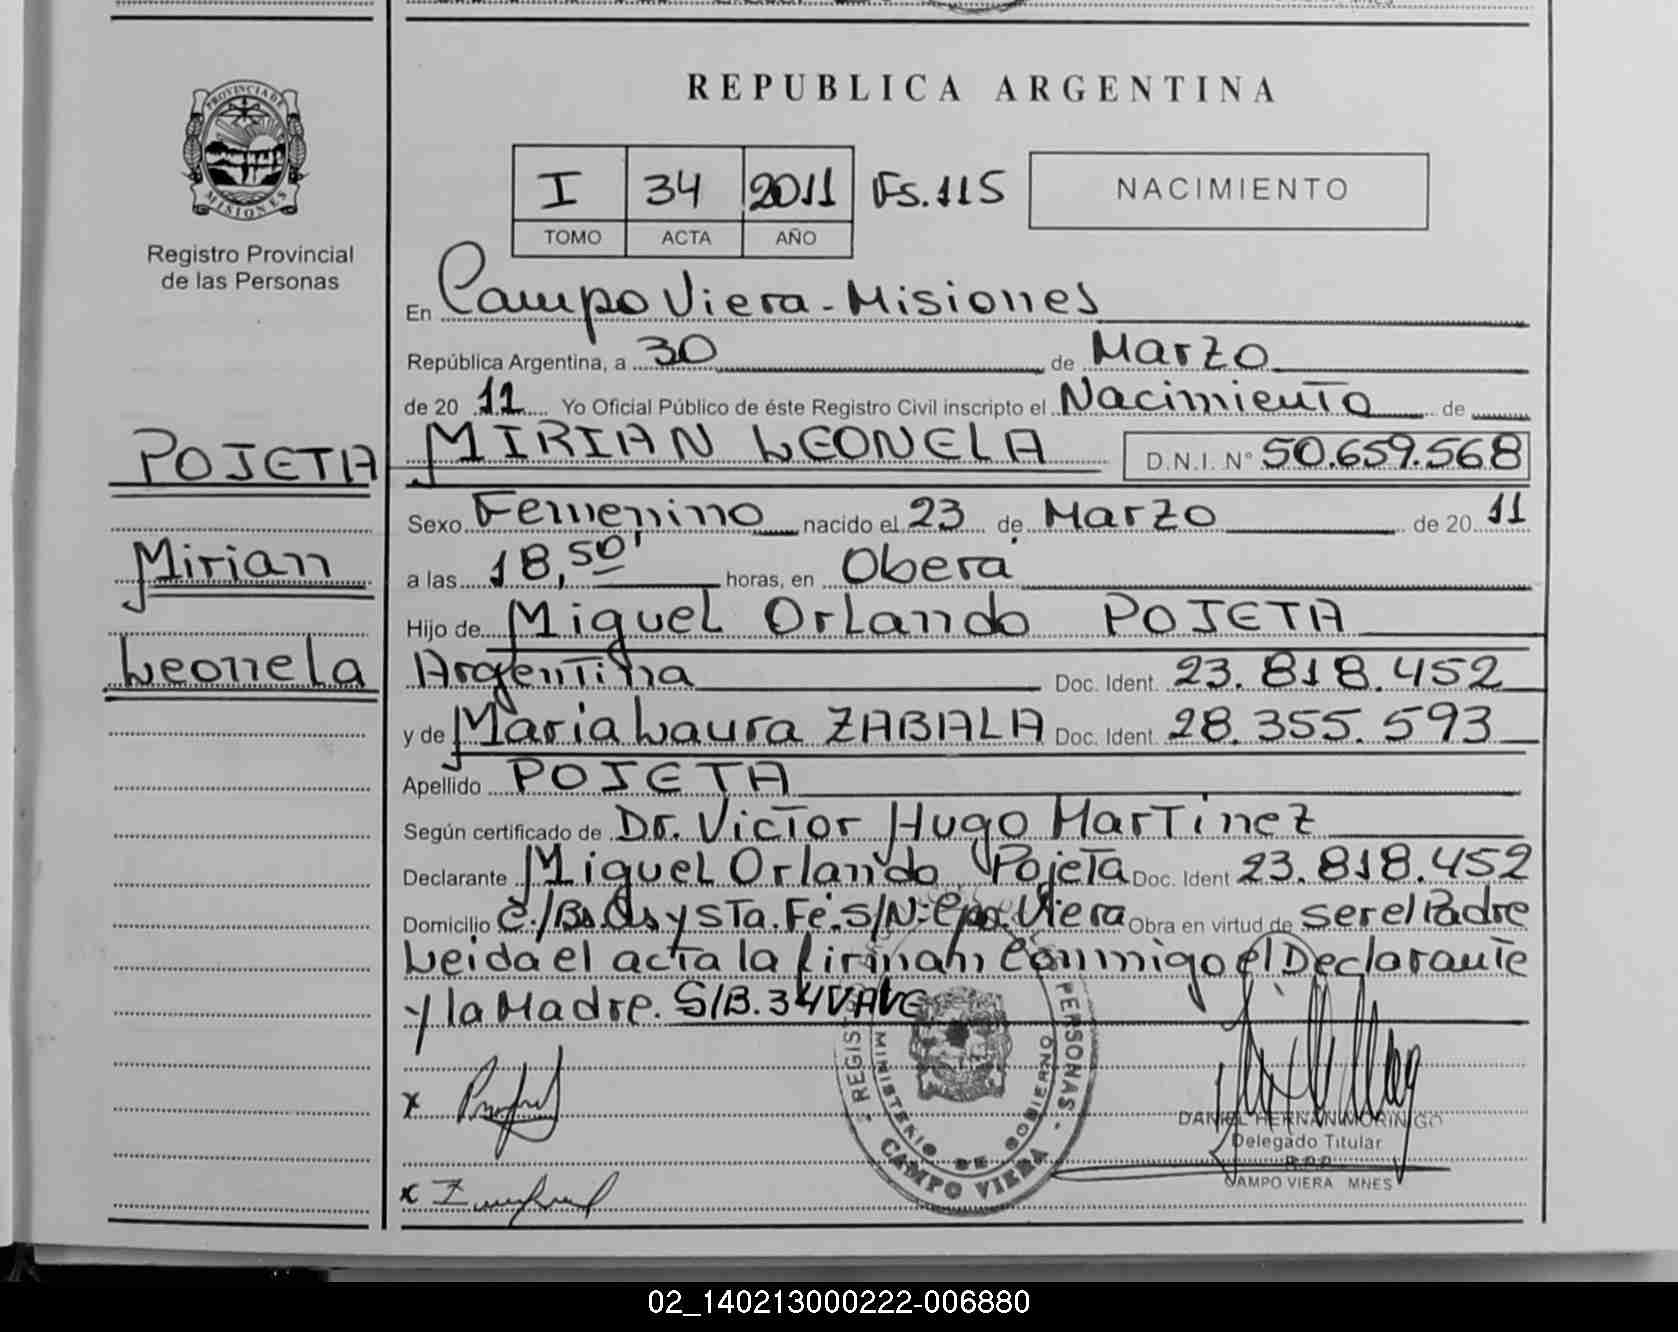 PROVINCIA DE
MISIONES
Registro Provincial
de las Personas
POJETA
Mirian
Leonela
REPUBLICA ARGENTINA
I 34 2011 Fs.115 NACIMIENTO
TOMO ACTA AÑO
En Campo Viera-Misiones
República Argentina, a 30 de Marzo
de 20 11 Yo Oficial Público de éste Registro Civil inscripto el Nacimiento de
MIRIAN LEONELA D.N.I. N° 50.659.568
Sexo Femenino nacido el 23 de Marzo de 20 11
a las 18,50' horas, en Oberá
Hijo de Miguel Orlando POJETA
Argentina Doc. Ident. 23.818.452
y de Maria Laura ZABALA Doc. Ident. 28.355.593
Apellido POJETA
Según certificado de Dr. Victor Hugo Martinez
Declarante Miguel Orlando Pojeta Doc. Ident 23.818.452
Domicilio C/Bs.As y Sta.Fé.S/N-Cpo.Viera Obra en virtud de ser el Padre
Leida el acta la firman Conmigo el Declarante
y la Madre. S/B.34 VALE
x
x
REGIS PERSONAS
MINISTERIO DE GOBIERNO
CAMPO VIERA
DANIEL HERNAN MORINIGO
Delegado Titular
R.P.P.
CAMPO VIERA MNES
02_140213000222-006880